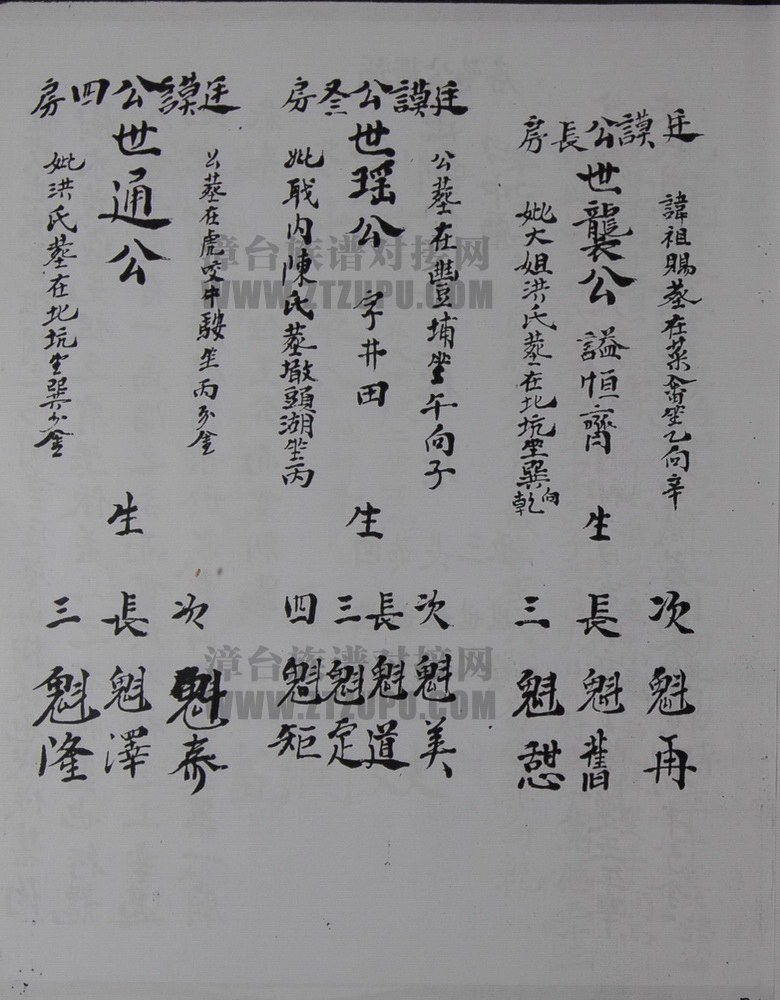 廷謨公長房
諱祖賜墓在菜畬坐乙向辛
世襲公 謚恒齊 生
妣大姐洪氏墓在北坑坐巽向乾
次魁再
長魁舊
三魁憇
廷謨公叁房
公墓在豊埔坐午向子
世瑶公 字井田 生
妣戢内陳氏墓墩頭湖坐丙
次魁美
長魁道
三魁定
四魁矩
廷謨公四房
公墓在虎咬牛 坐丙分金
世通公 生
妣洪氏墓在北坑坐巽分金
次魁泰
長魁澤
三魁隆
漳台族谱对接网
WWW.ZTZUPU.COM
漳台族谱对接网
WWW.ZTZUPU.COM